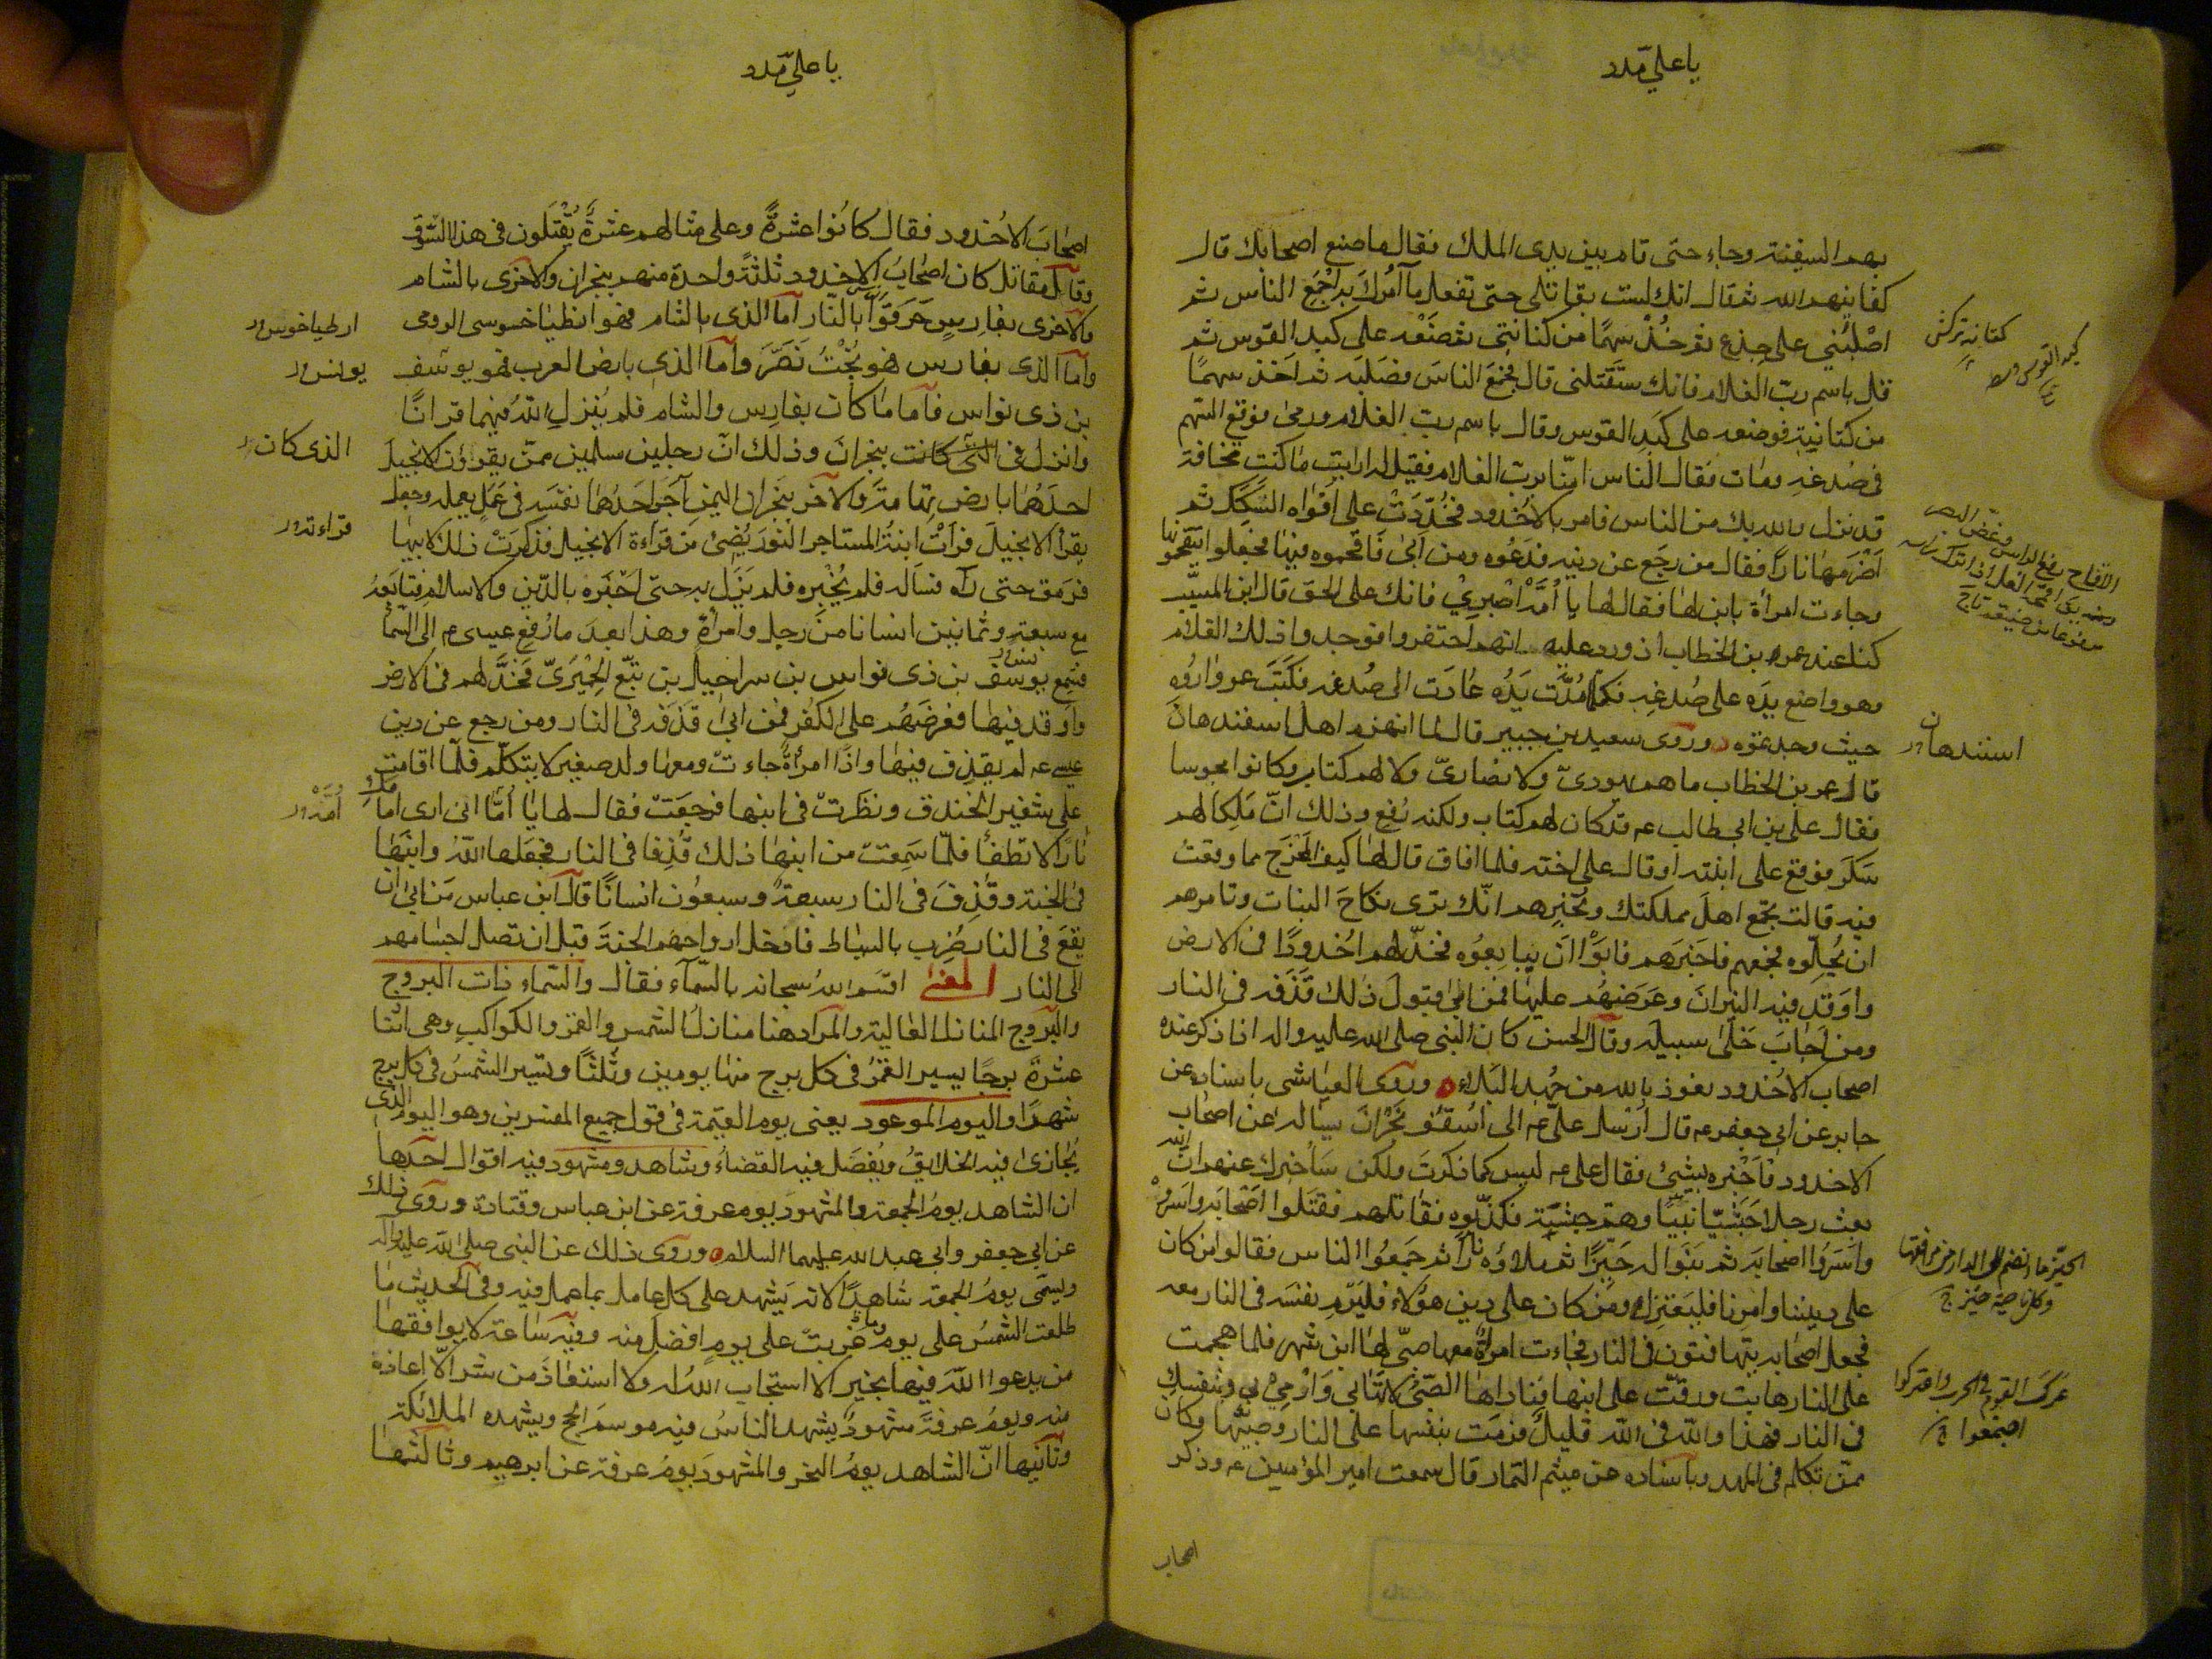 يا علي مدد
بهم السفينة وجاء حتى قام بين يدى الملك فقال ما صنع اصحابك قال
كفانيهم الله ثم قال انك لست بقاتلى حتى تفعل ما آمرك به اجمع الناس ثم
اصلبني على جذع ثم خذ سهما من كنانتى ثم ضعه على كبد القوس ثم
قل باسم رب الغلام فانك ستقتلنى قال فجمع الناس فصلبه ثم اخذ سهما
من كنانته فوضعه على كبد القوس وقال باسم رب الغلام ورمى فوقع السهم
فى صدغه ومات فقال الناس امنا برب الغلام فقيل له ارايت ما كنت تخافه
قد نزل والله بك من الناس فامر بالاخدود فخددت على افواه السكك ثم
اضرمها نارا فقال من رجع عن دينه فدعوه ومن ابى فاقحموه فيها فجعلوا يتقحمونها
وجاءت امرأة بابن لها فقال لها يا امه اصبري فانك على الحق قال ابن المسيب
كنا عند عمر بن الخطاب اذ ورد عليه انهم احتفروا فوجدوا ذلك الغلام
وهو واضع يده على صدغه فكلما مدت يده عادت الى صدغه فكتب عمر واروه
حيث وجدتموه وروى سعيد بن جبير قال لما انهزم اهل اسفندهان
قال عمر بن الخطاب ما هم يهودى ولا نصارى ولا لهم كتاب وكانوا مجوسا
فقال على بن ابى طالب عم قد كان لهم كتاب ولكنه رفع وذلك ان ملكا لهم
سكر فوقع على ابنته او قال على اخته فلما افاق قال لها كيف المخرج مما وقعت
فيه قالت تجمع اهل مملكتك وتخبرهم انك ترى نكاح البنات وتامرهم
ان يحلوه فجمعهم فاخبرهم فابوا ان يبايعوه فخد لهم اخدودا فى الارض
واوقد فيه النيران وعرضهم عليها فمن ابى قبول ذلك قذفه فى النار
ومن اجاب خلى سبيله وقال الحسن كان النبى صلى الله عليه واله اذا ذكر عنده
اصحاب الاخدود تعوذ بالله من جهد البلاء وروى العياشى باسناده عن
جابر عن ابى جعفر عم قال ارسل على عم الى اسقف نجران يساله عن اصحاب
الاخدود فاخبره بشيئ فقال على عم ليس كما ذكرت ولكن ساخبرك عنهم ان الله
بعث رجلا حبشيا نبيا وهم حبشية فكذبوه فقاتلهم فقتلوا اصحابه واسروه
واسروا اصحابه ثم بنوا له حيزا ثم ملاؤه نارا ثم جمعوا الناس فقالوا من كان
على ديننا وامرنا فليعتزل ومن كان على دين هؤلاء فليرم نفسه فى النار معه
فجعل اصحابه يتهافتون فى النار فجاءت امرأة معها صبى لها ابن شهر فلما هجمت
على النار هابت ورقت على ابنها فناداها الصبى لا تهابى وارمي بي وبنفسك
فى النار فهذا والله فى الله قليل فرمت بنفسها على النار وصبيها وكان
ممن تكلم فى المهد وباسناده عن ميثم التمار قال سمعت امير المؤمنين عم وذكر
اصحاب
كنانه تركش
كبد القوس وسط
استندهان
الحيز ما انضم الى الدار من مرافقها
وكل ناحية حيز ج
عرك القوم فى الحرب واعتركوا
اجتمعوا ج
يا علي مدد
اصحاب الاخدود فقال كانوا عشرة وعلى مثالهم عشرة يقتلون فى هذا السوق
وقال مقاتل كان اصحاب الاخدود ثلثة واحدة منهم بنجران والاخرى بالشام
والاخرى بفارس حرقوا بالنار اما الذى بالشام فهو انطياخوس الرومى
واما الذى بفارس فهو بخت نصر واما الذى بارض العرب فهو يوسف
بن ذى نواس فاما ما كان بفارس والشام فلم ينزل الله فيهما قرانا
وانزل فى التى كانت بنجران وذلك ان رجلين مسلمين ممن يقرؤن الانجيل
احدهما بارض تهامة والآخر بنجران اليمن آجر احدهما نفسه فى عمل يعمله وجعل
يقرأ الانجيل فرأت ابنة المستاجر النور يضيئ من قراءة الانجيل فذكرت ذلك لابيها
فرمق حتى رآه فساله فلم يخبره فلم يزل به حتى اخبره بالدين والاسلام فتابعه
مع سبعة وثمانين انسانا من رجل وامرأة وهذا بعد ما رفع عيسى عم الى السماء
فسمع يوسف بن ذى نواس بن سراحيل بن تبع الحميرى فخد لهم فى الارض
واوقد فيها فعرضهم على الكفر فمن ابى قذفه فى النار ومن رجع عن دين
عيسى عم لم يقذف فيها واذا امرأة جاءت ومعها ولد صغير لا يتكلم فلما قامت
على شفير الخندق ونظرت فى ابنها فرجعت فقال لها يا اماه انى ارى امامك
نارا لا تطفأ فلما سمعت من ابنها ذلك قذفا فى النار فجعلها الله وابنها
فى الجنة وقذف فى النار سبعة وسبعون انسانا قال ابن عباس من ابى ان
يقع فى النار ضرب بالسياط فادخل ارواحهم الجنة قبل ان تصل اجسامهم
الى النار المعنى اقسم الله سبحانه بالسماء فقال والسماء ذات البروج
والبروج المنازل العالية والمراد هنا منازل الشمس والقمر والكواكب وهى اثنا
عشرة برجا يسير القمر فى كل برج منها يومين وثلثا وتسير الشمس فى كل برج
شهرا واليوم الموعود يعنى يوم القيمة فى قول جميع المفسرين وهو اليوم الذى
يجازى فيه الخلايق ويفصل فيه القضاء وشاهد ومشهود فيه اقوال احدها
ان الشاهد يوم الجمعة والمشهود يوم عرفة عن ابن عباس وقتادة وروى ذلك
عن ابى جعفر وابى عبد الله عليهما السلام وروى ذلك عن النبى صلى الله عليه واله
وسمى يوم الجمعة شاهدا لانه يشهد على كل عامل بما عمل فيه وفى الحديث ما
طلعت الشمس على يوم وما غربت على يوم افضل منه وفيه ساعة لا يوافقها
من يدعوا الله فيها بخير الا استجاب الله له ولا استعاذ من شر الا اعاذه
منه ويوم عرفة مشهود يشهد الناس فيه موسم الحج ويشهده الملائكة
وثانيها ان الشاهد يوم النحر والمشهود يوم عرفة عن ابرهيم وثالثها
يونس
الذى كان
قراءته